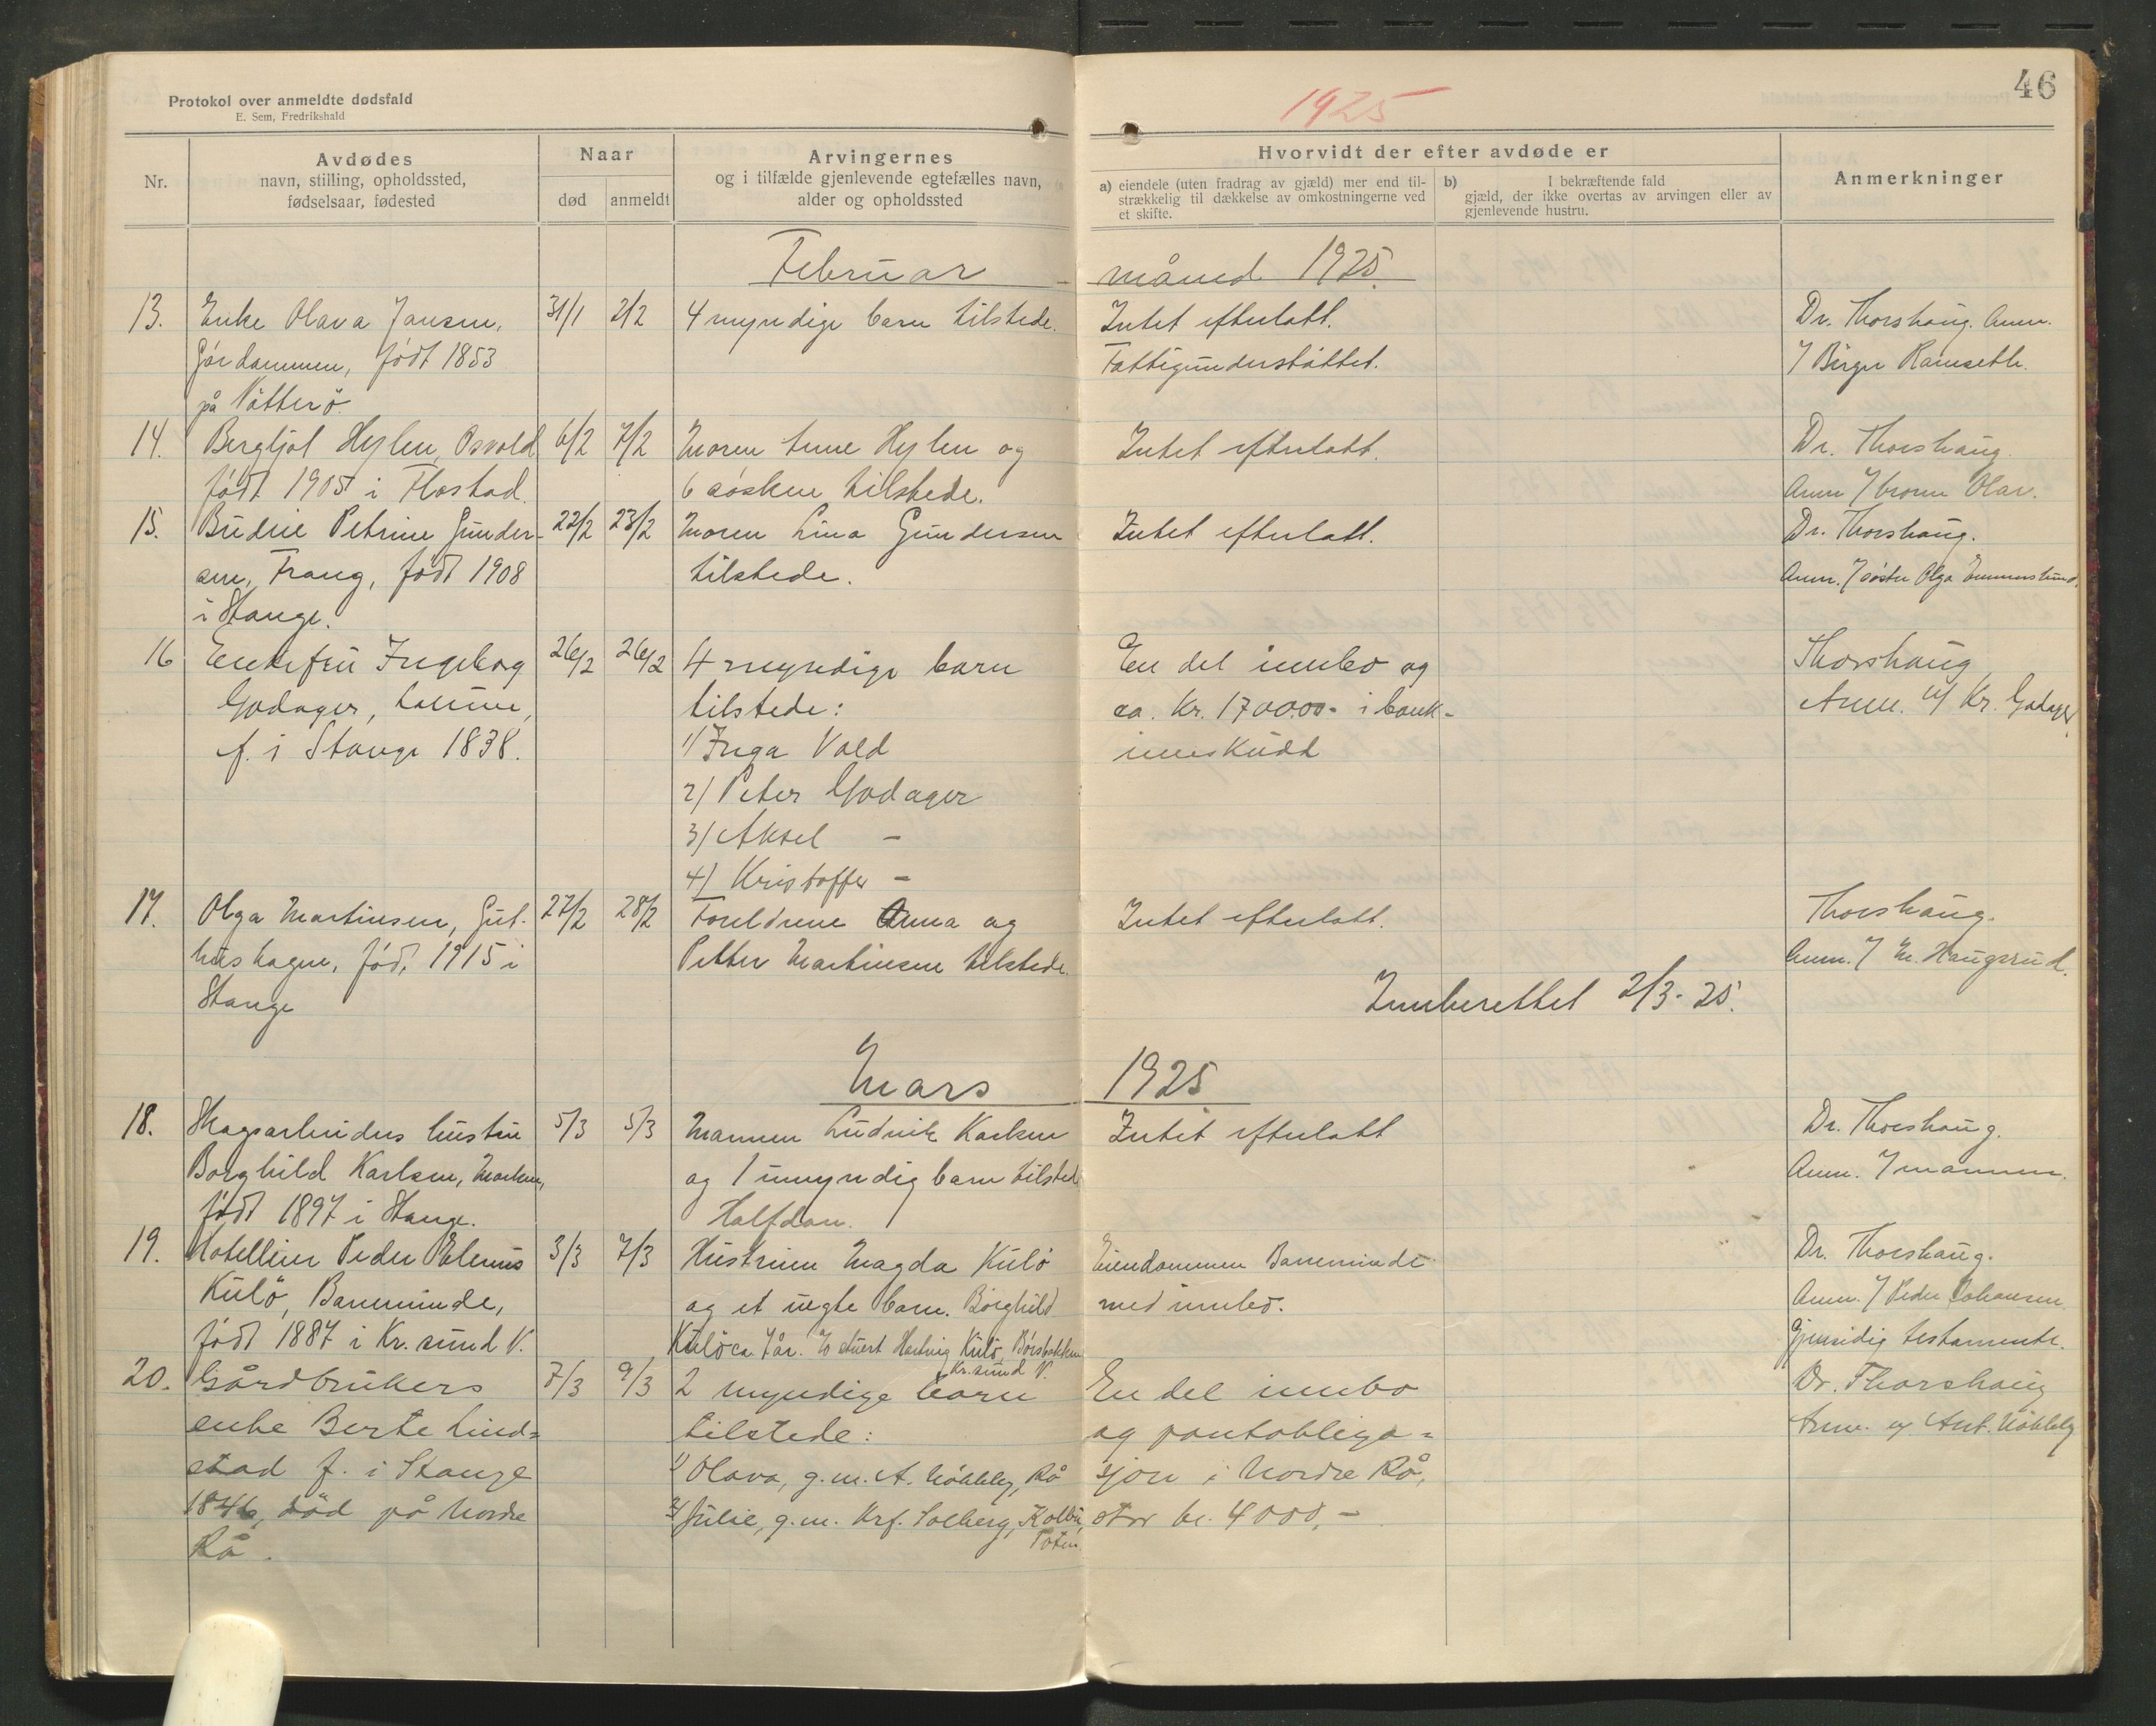 Protokol over anmeldte dødsfald
E. Sem, Fredrikshald
1925
46
Nr.
Avdødes
navn, stilling, opholdssted,
fødselsaar, fødested
Naar
død
anmeldt
Arvingernes
og i tilfælde gjenlevende egtefælles navn,
alder og opholdssted
Hvorvidt der efter avdøde er
a) eiendele (uten fradrag av gjæld) mer end til-
strækkelig til dækkelse av omkostningerne ved
et skifte.
b) I bekræftende fald
gjæld, der ikke overtas av arvingen eller av
gjenlevende hustru.
Anmerkninger
Februar måned 1925.
13. Enke Olava Jansen, 31/1 2/2 4 myndige barn tilstede. Intet efterlatt. Dr. Thorshaug. Anm.
født 1853 Fattigunderstøttet. Birger Ramseth.
på Nötterö.
14. Bergljot Hylen, Osvold 6/2 7/2 Moren Anne Hylen og Intet efterlatt. Dr. Thorshaug.
født 1905 i Flostad. 6 søsken tilstede. Anm / broren Olav.
15. Petrine Gunder- 22/2 23/2 Moren Lina Gundersen Intet efterlatt. Dr. Thorshaug.
sen, Frang, født 1908 tilstede. Anm. / søster Olga
i Stange.
16 Enkefru Ingeborg 26/2 26/2 4 myndige barn En del innbo og Thorshaug
Godager, tilstede: ca. Kr. 17000.00- i bank- Anm. v/ Kr. Godager
f. i Stange 1838. 1/ Inga Vold innskudd
2/ Peter Godager
3/ Aksel -
4/ Kristoffer -
17. Olga Martinsen, Gut- 27/2 28/2 Foreldrene Anna og Intet efterlatt. Thorshaug.
hushagen, fød. 1915 i Petter Martinsen tilstede. Anm. / M. Haugsrud.
Stange
Innberettet 2/3-25.
Mars 1925
18. Skogsarbeiders hustru 5/3 5/3 Mannen Ludvik Karlsen Intet efterlatt Dr. Thorshaug.
Borghild Karlsen, og 1 umyndig barn tilstede Anm. / mannen.
født 1897 i Stange. Halfdan.
19. Hotelleier Peder 3/3 7/3 Hustruen Magda Kulö Eiendommen Baneminde Dr. Thorshaug.
Kulö, Baneminde, og et uegte barn. Borghild med innbo. Anm. / Peder Johansen.
født 1887 i Kr.sund N. Kulö ca. 7 år. Hartvig Kulö, Gjensidig testamente.
Kr.sund N.
20. Gårdbrukers 7/3 9/3 2 myndige barn En del innbo Dr. Thorshaug
enke Berte Lind= tilstede: og pantobliga= Anm. v/ Ant.
stad f. i Stange 1/ Olava, g.m. A. Rå sjon i Nordre Rå,
1846, död på Nordre 2/ Julie, g.m. Krf. Solberg, Kolbu, stor kr. 4000,-
Rå. Toten.